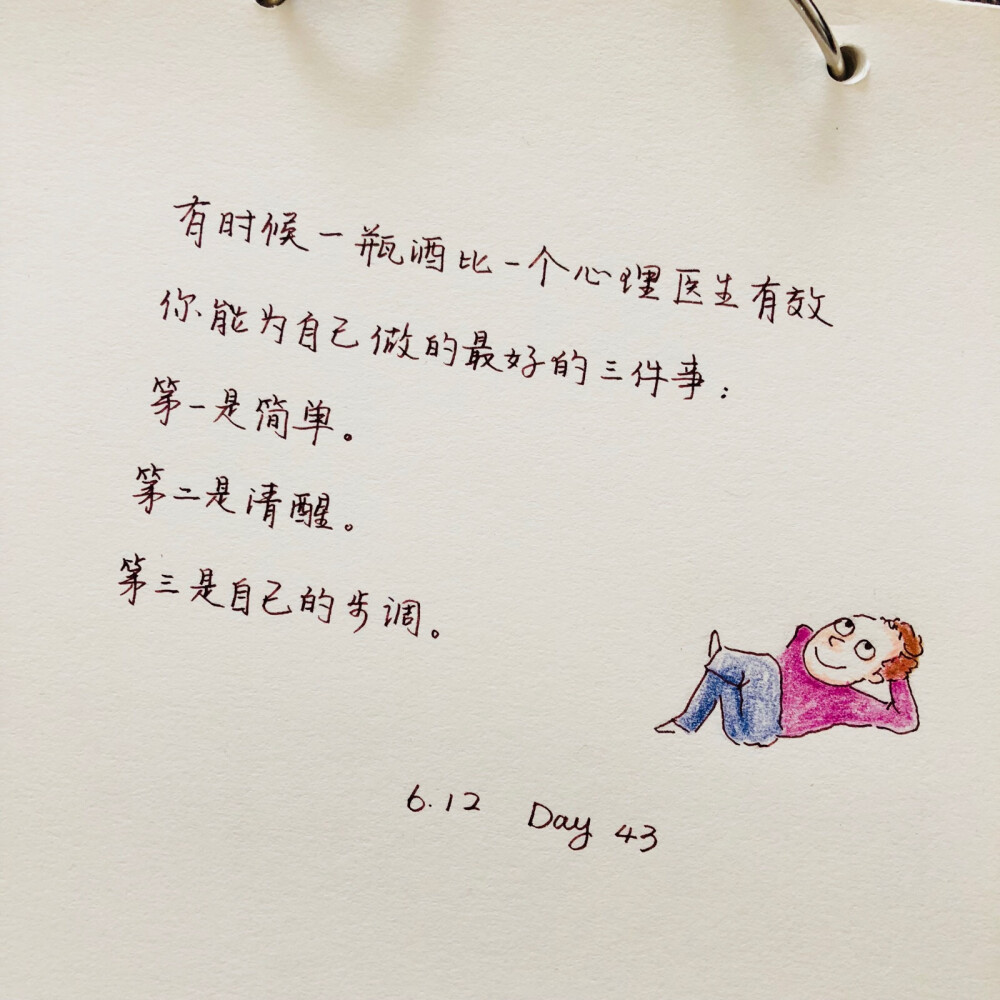 有时候一瓶酒比一个心理医生有效
你能为自己做的最好的三件事：
第一是简单。
第二是清醒。
第三是自己的步调。
6.12 Day 43